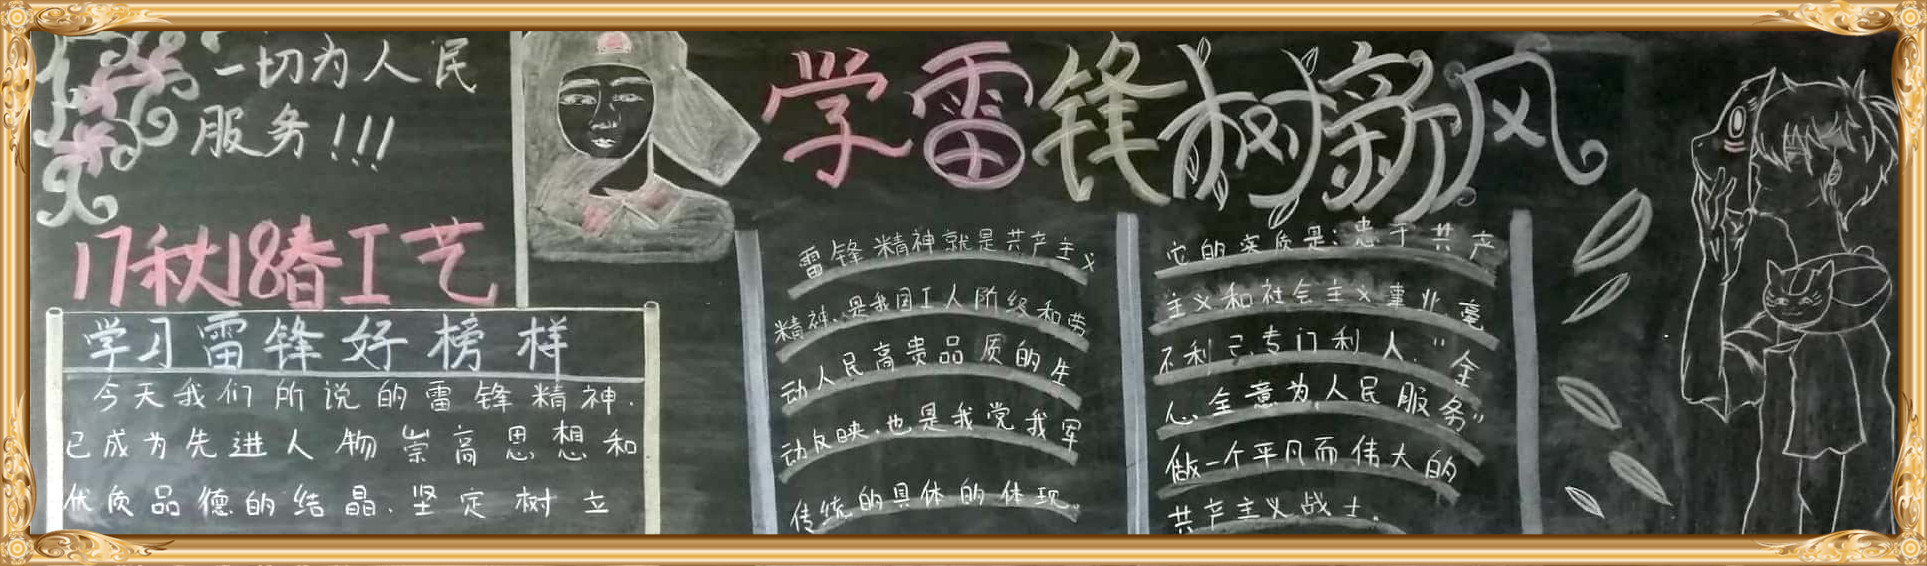 一切为人民
服务!!!
17秋18春工艺
学习雷锋好榜样
今天我们所说的雷锋精神.
已成为先进人物崇高思想和
优质品德的结晶.坚定树立
学雷锋树新风
雷锋精神就是共产主义
精神.是我国工人阶级和劳
动人民高贵品质的生
动反映.也是我党我军
传统的具体的体现.
它的实质是:忠于共产
主义和社会主义事业.毫
不利己.专门利人."全
心全意为人民服务"
做一个平凡而伟大的
共产主义战士.